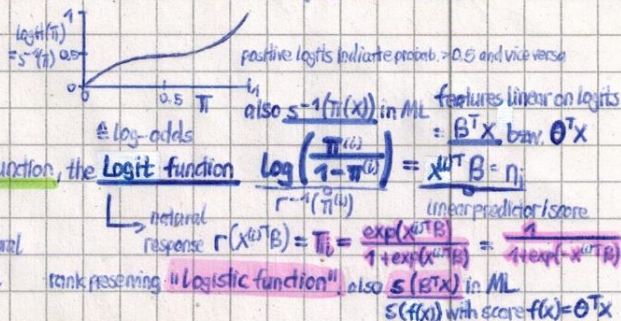 logit(π)
= s⁻¹(π)
1
0.5
0
0.5
π
1
positive logits indicate probab. > 0.5 and vice versa
≙ log-odds
also s⁻¹(π(x)) in ML
features linear on logits
= β^T x bzw. θ^T x
unction, the Logit function
log(π^(i) / 1 - π^(i)) = x^(i)T β = η_i
r⁻¹(π^(i))
linear predictor/score
natural
response r(x^(i)T β) = π_i = exp(x^(i)T β) / 1 + exp(x^(i)T β) = 1 / 1 + exp(-x^(i)T β)
rank preserving "Logistic function", also s(β^T x) in ML
s(f(x)) with score f(x) = θ^T x